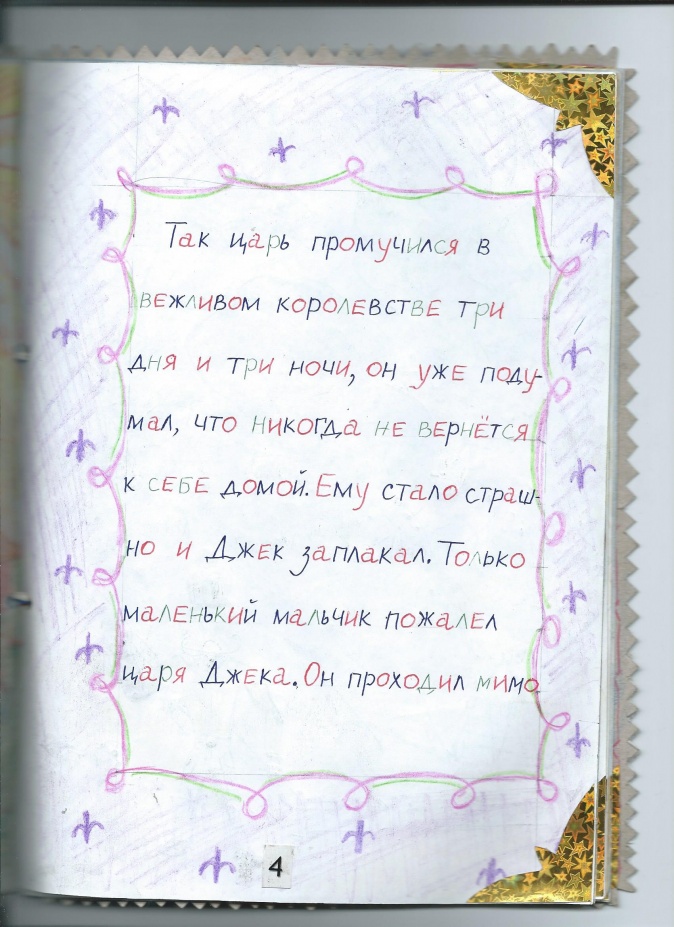 Так царь промучился в
вежливом королевстве три
дня и три ночи, он уже поду-
мал, что никогда не вернётся
к себе домой. Ему стало страш-
но и Джек заплакал. Только
маленький мальчик пожалел
царя Джека. Он проходил мимо
4